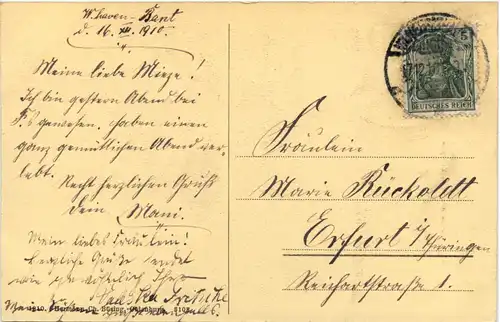 W.haven-Bant
d. 16. XII. 1910.
Meine liebe Mieze!
Ich bin gestern Abend bei
P.'s gewesen, haben einen
ganz gemütlichen Abend ver-
lebt.
Recht herzlichen Gruß
Dein Mani.
Mein liebes Fräulein!
herzliche Grüße sendet
wie gewöhnlich Ihre
DEUTSCHES REICH
Fräulein
Marie Rückoldt
Erfurt i/Thüringen
Reichartstraße 1.